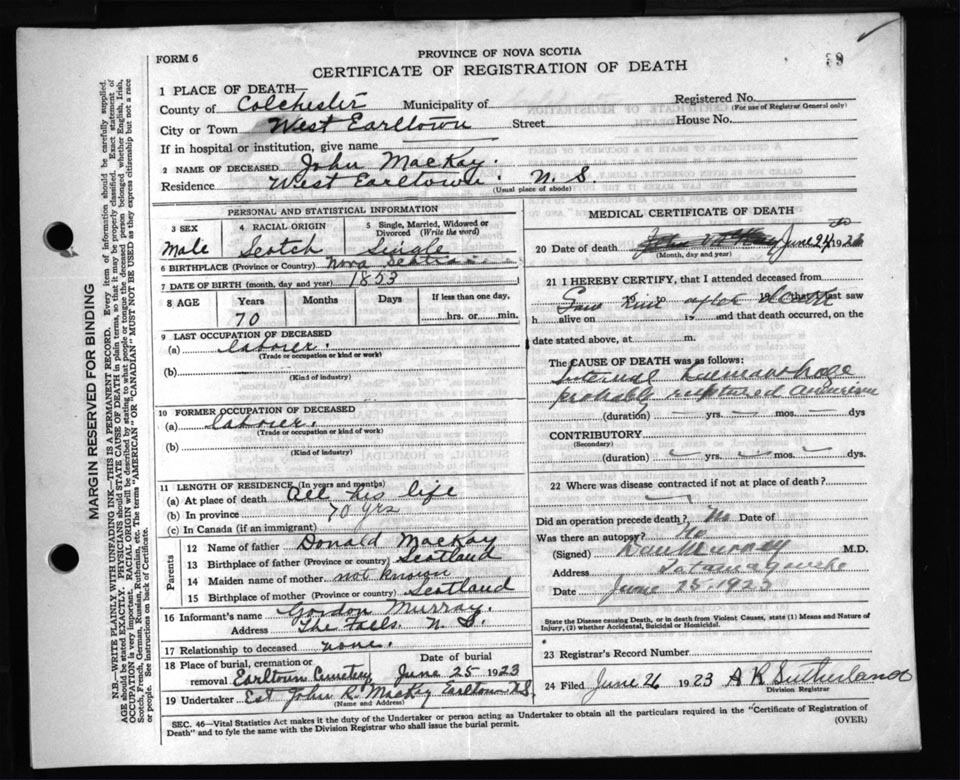 PROVINCE OF NOVA SCOTIA
FORM 6
CERTIFICATE OF REGISTRATION OF DEATH
MARGIN RESERVED FOR BINDING
N.B.—WRITE PLAINLY WITH UNFADING INK—THIS IS A PERMANENT RECORD. Every item of information should be carefully supplied.
AGE should be stated EXACTLY. PHYSICIANS should STATE CAUSE OF DEATH in plain terms, so that it may be properly classified. Exact statement of
OCCUPATION is very important. RACIAL ORIGIN will be described by stating to what people or tongue the deceased person belonged whether English, Irish,
Scotch, French, German, Russian, Ruthenian, etc. The terms "AMERICAN" OR "CANADIAN" MUST NOT BE USED as they express citizenship but not a race
or people. See instructions on back of Certificate.
1 PLACE OF DEATH—
County of Colchester Municipality of Registered No.
(For use of Registrar General only)
City or Town West Earltown Street House No.
If in hospital or institution, give name
2 NAME OF DECEASED John MacKay.
Residence West Earltown. N. S.
(Usual place of abode)
PERSONAL AND STATISTICAL INFORMATION
3 SEX 4 RACIAL ORIGIN 5 Single, Married, Widowed or Divorced (Write the word)
Male Scotch Single
6 BIRTHPLACE (Province or Country) Nova Scotia
7 DATE OF BIRTH (month, day and year) 1853
8 AGE Years Months Days If less than one day,
70 hrs. or min.
9 LAST OCCUPATION OF DECEASED
(a) laborer.
(Trade or occupation or kind or work)
(b)
(Kind of industry)
10 FORMER OCCUPATION OF DECEASED
(a) laborer.
(Trade or occupation or kind or work)
(b)
(Kind of industry)
11 LENGTH OF RESIDENCE (In years and months)
(a) At place of death all his life
(b) In province 70 yrs
(c) In Canada (if an immigrant)
Parents
12 Name of father Donald MacKay
13 Birthplace of father (Province or country) Scotland
14 Maiden name of mother not known
15 Birthplace of mother (Province or country) Scotland
16 Informant's name Gordon Murray.
Address The Falls N. S.
17 Relationship to deceased none.
18 Place of burial, cremation or removal Earltown Cemetery Date of burial June 25 1923
19 Undertaker Est John R. MacKay Earltown N.S.
(Name and Address)
MEDICAL CERTIFICATE OF DEATH
20 Date of death June 1923
(Month, day and year)
21 I HEREBY CERTIFY, that I attended deceased from
Saw him after death
19 to 19 that I last saw
h alive on 19 and that death occurred, on the
date stated above, at m.
The CAUSE OF DEATH was as follows:
Internal haemorrhage
probable ruptured aneurism
(duration) yrs. mos. dys
CONTRIBUTORY
(Secondary)
(duration) yrs. mos. dys.
22 Where was disease contracted if not at place of death?
Did an operation precede death? No Date of
Was there an autopsy? No
(Signed) Dan Murray M.D.
Address Tatamagouche
Date June 25 1923
State the Disease causing Death, or in death from Violent Causes, state (1) Means and Nature of
Injury, (2) whether Accidental, Suicidal or Homicidal.
23 Registrar's Record Number
24 Filed June 26 1923 A R Sutherland
Division Registrar
SEC. 46—Vital Statistics Act makes it the duty of the Undertaker or person acting as Undertaker to obtain all the particulars required in the "Certificate of Registration of
Death" and to fyle the same with the Division Registrar who shall issue the burial permit.
(OVER)